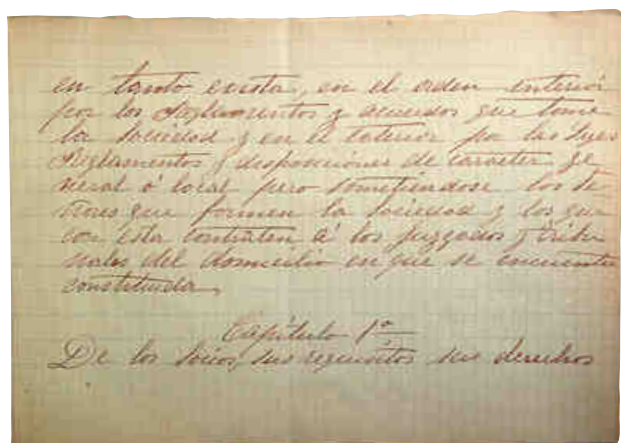 en tanto exista, en el orden interior
por los Reglamentos y acuerdos que tome
la Sociedad y en el exterior por las Leyes
Reglamentos y disposiciones de caracter ge
neral ó local pero sometiendose los Se
ñores que formen la Sociedad y los que
con esta contraten á los juzgados y tribu
nales del domicilio en que se encuentre
constituida.
Capítulo 1º
De los Socios, sus requisitos sus derechos